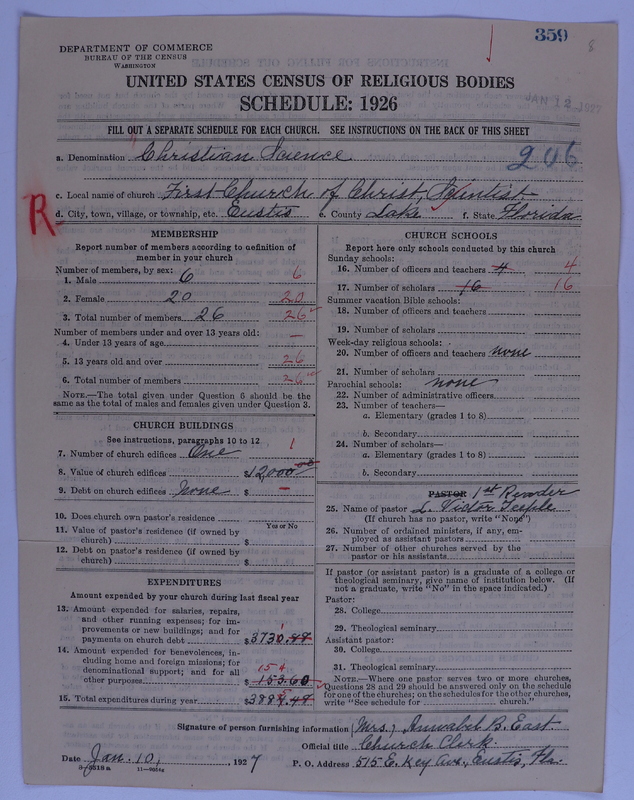 359
8
DEPARTMENT OF COMMERCE
BUREAU OF THE CENSUS
WASHINGTON
UNITED STATES CENSUS OF RELIGIOUS BODIES
SCHEDULE: 1926
JAN 12 1927
FILL OUT A SEPARATE SCHEDULE FOR EACH CHURCH. SEE INSTRUCTIONS ON THE BACK OF THIS SHEET
a. Denomination Christian Science
206
c. Local name of church First Church of Christ, Scientist
R
d. City, town, village, or township, etc. Eustis e. County Lake f. State Florida
MEMBERSHIP
Report number of members according to definition of
member in your church
Number of members, by sex:
1. Male 6 6
2. Female 20 20
3. Total number of members 26 26
Number of members under and over 13 years old:
4. Under 13 years of age —
5. 13 years old and over 26
6. Total number of members 26
NOTE.—The total given under Question 6 should be
same as the total of males and females given under Question 3.
CHURCH BUILDINGS
See instructions, paragraphs 10 to 12
7. Number of church edifices One 1
8. Value of church edifices $12,000.00
9. Debt on church edifices None $ —
10. Does church own pastor's residence
Yes or No
11. Value of pastor's residence (if owned by
church) $
12. Debt on pastor's residence (if owned by
church) $
EXPENDITURES
Amount expended by your church during last fiscal year
13. Amount expended for salaries, repairs,
and other running expenses; for im-
provements or new buildings; and for
payments on church debt $3730.
14. Amount expended for benevolences, in-
cluding home and foreign missions; for
denominational support; and for all
154
other purposes $153.60
15. Total expenditures during year $
CHURCH SCHOOLS
Report here only schools conducted by this church
Sunday schools:
16. Number of officers and teachers 4 4
17. Number of scholars 16 16
Summer vacation Bible schools:
18. Number of officers and teachers
19. Number of scholars
Week-day religious schools:
20. Number of officers and teachers none
21. Number of scholars
Parochial schools: none
22. Number of administrative officers
23. Number of teachers—
a. Elementary (grades 1 to 8)
b. Secondary
24. Number of scholars—
a. Elementary (grades 1 to 8)
b. Secondary
PASTOR 1st Reader
25. Name of pastor L. Victor
(If church has no pastor, write "None")
26. Number of ordained ministers, if any, em-
ployed as assistant pastors
27. Number of other churches served by the
pastor or his assistants
If pastor (or assistant pastor) is a graduate of a college or
theological seminary, give name of institution below. (If
not a graduate, write "No" in the space indicated.)
Pastor:
28. College
29. Theological seminary
Assistant pastor:
30. College
31. Theological seminary
NOTE.—Where one pastor serves two or more churches,
Questions 28 and 29 should be answered only on the schedule
for one of the churches; on the schedules for the other churches,
write "See schedule for church."
Signature of person furnishing information (Mrs.) Annabel B. East
Official title Church Clerk
Date Jan. 10, 1927 P. O. Address 515 E. Key Ave., Eustis, Fla.